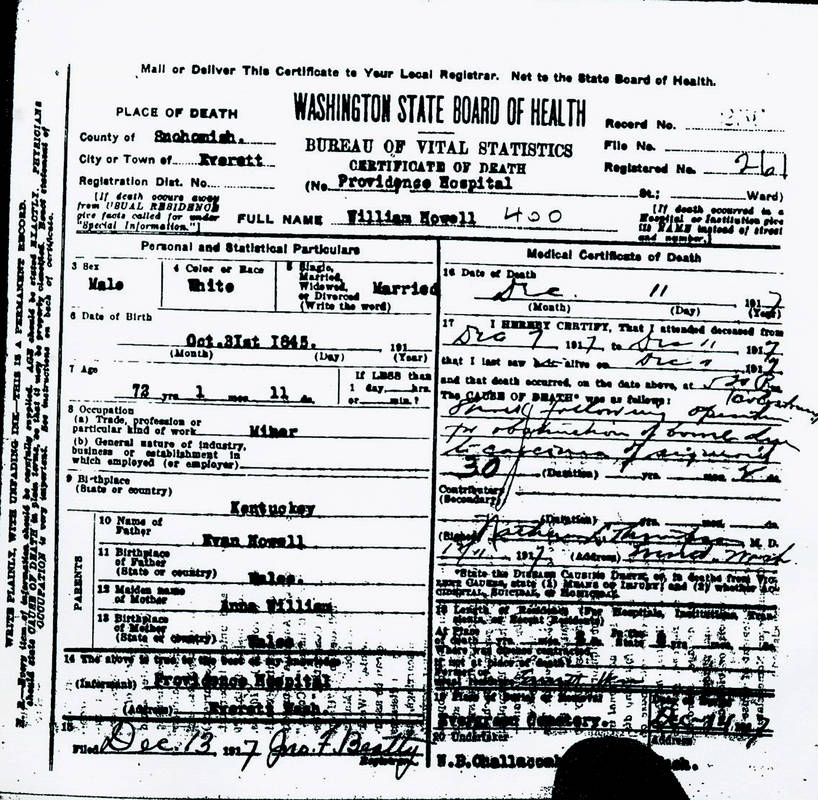 Mail or Deliver This Certificate to Your Local Registrar. Not to the State Board of Health.
WRITE PLAINLY, WITH UNFADING INK—THIS IS A PERMANENT RECORD.
N. B.—Every item of information should be carefully supplied. AGE should be stated EXACTLY. PHYSICIANS
should state CAUSE OF DEATH in plain terms, so that it may be properly classified. Exact statement of
OCCUPATION is very important. See instructions on back of certificate.
PLACE OF DEATH
County of Snohomish.
City or Town of Everett
Registration Dist. No.
[If death occurs away
from USUAL RESIDENCE
give facts called for under
"Special Information."]
WASHINGTON STATE BOARD OF HEALTH
BUREAU OF VITAL STATISTICS
CERTIFICATE OF DEATH
(No. Providence Hospital
St.; Ward)
Record No.
File No.
Registered No. 261
[If death occurred in a
Hospital or Institution give
its NAME instead of street
and number.]
FULL NAME William Howell 400
Personal and Statistical Particulars
3 Sex
Male
4 Color or Race
White
5 Single,
Married,
Widowed,
or Divorced
(Write the word)
Married
6 Date of Birth
Oct.31st 1845. 191
(Month) (Day) (Year)
7 Age
72 yrs. 1 mos. 11 ds.
If LESS than
1 day, hrs.
or min.?
8 Occupation
(a) Trade, profession or
particular kind of work Miner
(b) General nature of industry,
business or establishment in
which employed (or employer)
9 Birthplace
(State or country)
Kentuckey
PARENTS
10 Name of
Father
Evan Howell
11 Birthplace
of Father
(State or country)
Wales.
12 Maiden name
of Mother
Anna William
13 Birthplace
of Mother
(State or country)
Wales
14 The above is true to the best of my knowledge
(Informant) Providence Hospital
(Address) Everett Wash
15
Filed Dec. 13 1917 Jno. F. Beatty
Registrar
Medical Certificate of Death
16 Date of Death
Dec. 11 1917
(Month) (Day) (Year)
17 I HEREBY CERTIFY, That I attended deceased from
Dec 7 1917 to Dec 11 1917
that I last saw alive on Dec 1917
and that death occurred, on the date above, at m.
The CAUSE OF DEATH* was as follows:
following
for obstruction of bowel due
to carcinoma of sigmoid
30 (Duration) yrs. mos. ds.
Contributory
(Secondary)
(Duration) yrs. mos. ds.
(Signed) M. D.
1917 (Address)
*State the DISEASE CAUSING DEATH, or, in deaths from VIO-
LENT CAUSES, state (1) MEANS OF INJURY; and (2) whether AC-
CIDENTAL, SUICIDAL, or HOMICIDAL.
18 Length of Residence (For Hospitals, Institutions, Tran-
sients, or Recent Residents)
At Place
of death yrs. mos. ds.
State yrs. mos. ds.
Where was disease contracted
if not at place of death?
Former or
usual residence
19 Place of Burial or Removal
Evergreen Cemetery
Date of Burial
Dec 1917
20 Undertaker
Address
W.B.Challacomb